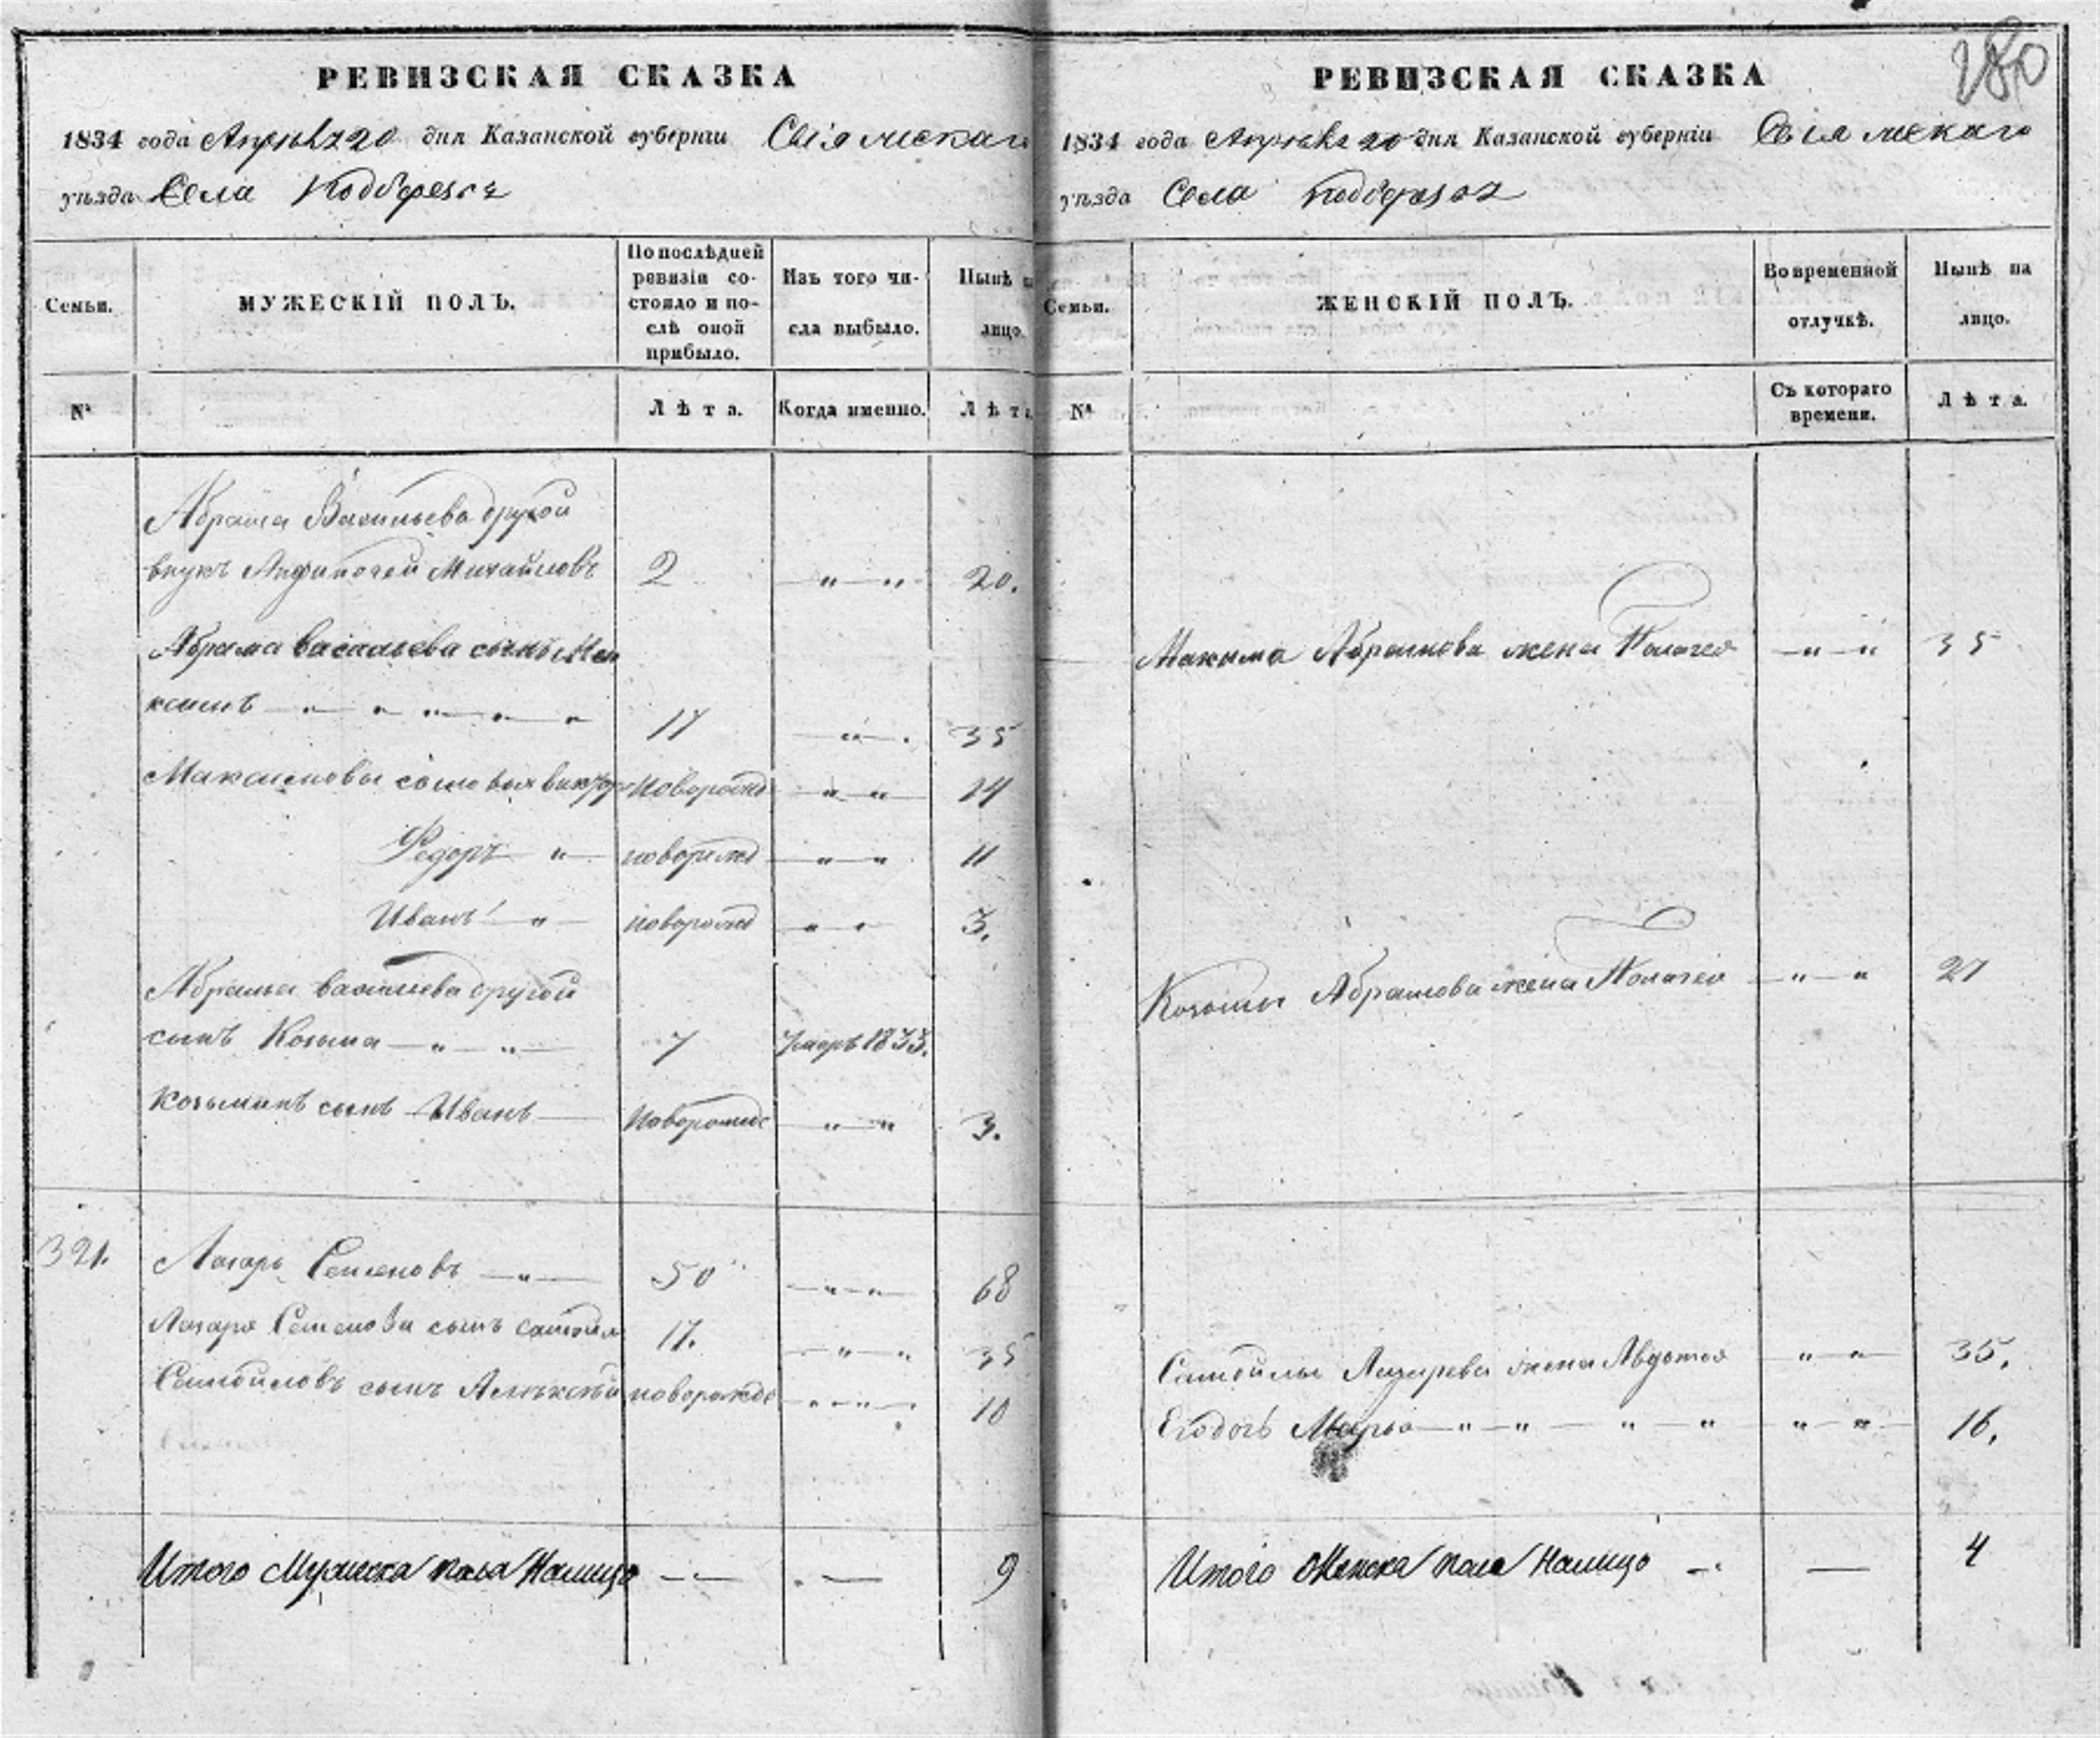 280
РЕВИЗСКАЯ СКАЗКА
1834 года Апреля 20 дня Казанской губерніи Свіяжскаго
уѣзда Села Подберезья
Семьи.
МУЖЕСКІЙ ПОЛЪ.
По послѣдней ревизіи состояло и послѣ оной прибыло.
Изъ того числа выбыло.
Нынѣ на лицо.
№
Лѣта.
Когда именно.
Лѣта
Абрама Васильева другой
внукъ Михайловъ 2 20.
Абрама Васильева сынъ Мак
симъ 17 35
Максимовы сыновья Викторъ новорожд 14
Федоръ новорожд 11
Иванъ новорожд 3.
Абрама Васильева другой
сынъ Козьма 7 Умеръ 1833.
Козьминъ сынъ Иванъ Новорожде 3.
321. Лазарь Семеновъ 50 68
Лазаря Семенова сынъ Самойла 17. 35
Самойловъ сынъ Алексѣй новорожде 10
Итого Мужеска пола Налицо 9
РЕВИЗСКАЯ СКАЗКА
1834 года Апреля 20 дня Казанской губерніи Свіяжскаго
уѣзда Села Подберезья
Семьи.
ЖЕНСКІЙ ПОЛЪ.
Во временной отлучкѣ.
Нынѣ на лицо.
№
Съ котораго времени.
Лѣта.
Максима Абрамова жена Палагея 35
Козьмы Абрамова жена Палагея 27
Самойлы Лазарева жена Авдотья 35.
Ево дочь Марья 16.
Итого Женска пола Налицо 4